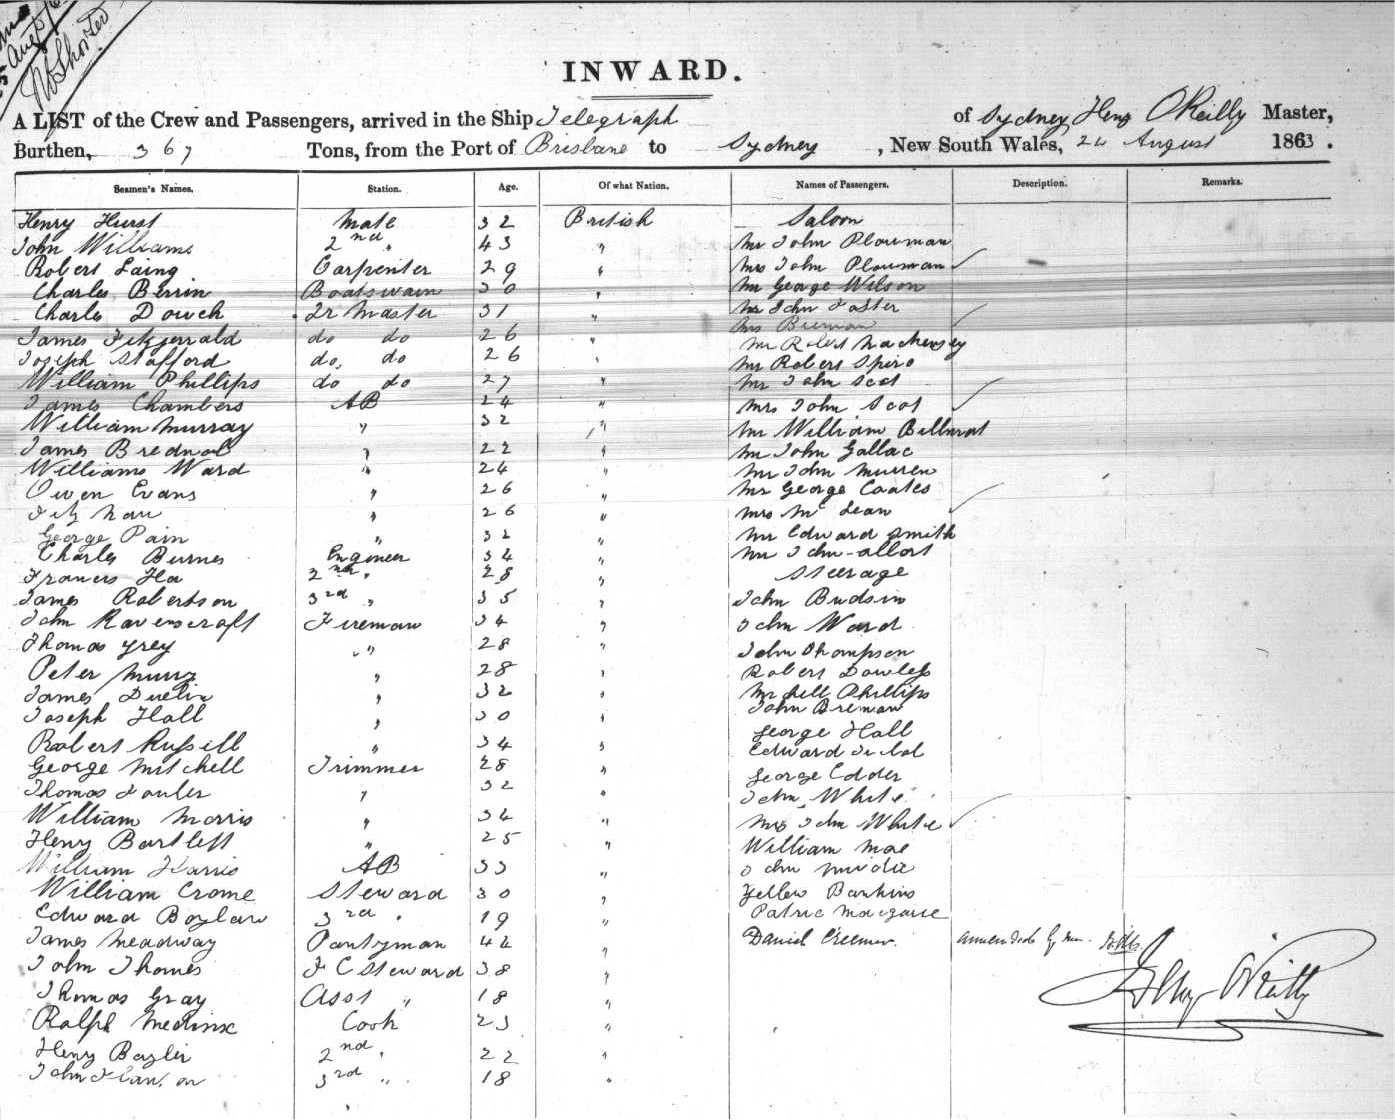 Shorter
INWARD.
A LIST of the Crew and Passengers, arrived in the Ship Telegraph of Sydney Henry O'Reilly Master,
Burthen, 367 Tons, from the Port of Brisbane to Sydney, New South Wales, 24 August 1863.
Seamen's Names. Station. Age. Of what Nation. Names of Passengers. Description. Remarks.
Henry Hurst Mate 32 British Saloon
John Williams 2nd " 43 " Mr John Plowman
Robert Laing Carpenter 29 " Mrs John Plowman
Charles Berrin Boatswain 30 " Mr George Wilson
Charles Dowch Qr Master 31 " Mr John Foster
James Fitzgerrald do do 26 " Mrs
Joseph Stafford do do 26 " Mr Robert
William Phillips do do 27 " Mr Robert Spiro
James Chambers AB 24 " Mr John Scot
William Murray " 32 " Mrs John Scot
James " 22 " Mr William
Williams Ward " 24 " Mr John Gallac
Owen Evans " 26 " Mr John Murren
" 26 " Mr George Coates
George Pain " 32 " Mrs Mc Lean
Charles Burnes Engineer 34 " Mr Edward Smith
Francis 2nd " 28 " Mr John
James Robertson 3rd " 35 " Steerage
John Ravenscraft Fireman 34 " John
Thomas Grey " 28 " John Ward
Peter " 28 " John Thompson
James " 32 " Robert Dowless
Joseph Hall " 30 " Phillips
Robert Russill " 34 " John Breman
George Mitchell Trimmer 28 " George Hall
Thomas " 32 " Edward
William Morris " 34 " George Edder
Henry Bartlett " 25 " John White
William Harris AB 33 " Mrs John White
William Crome Steward 30 " William
Edward Boylan 3rd " 19 " John
James Meadway Pantyman 42 " Yellew
John Thomes F C Steward 38 " Patric
Thomas Gray Asst " 18 " Daniel Creemer.
Ralph Cook 23 "
Henry 2nd " 22 "
John 3rd " 18 "
by me
Heny O'Reilly